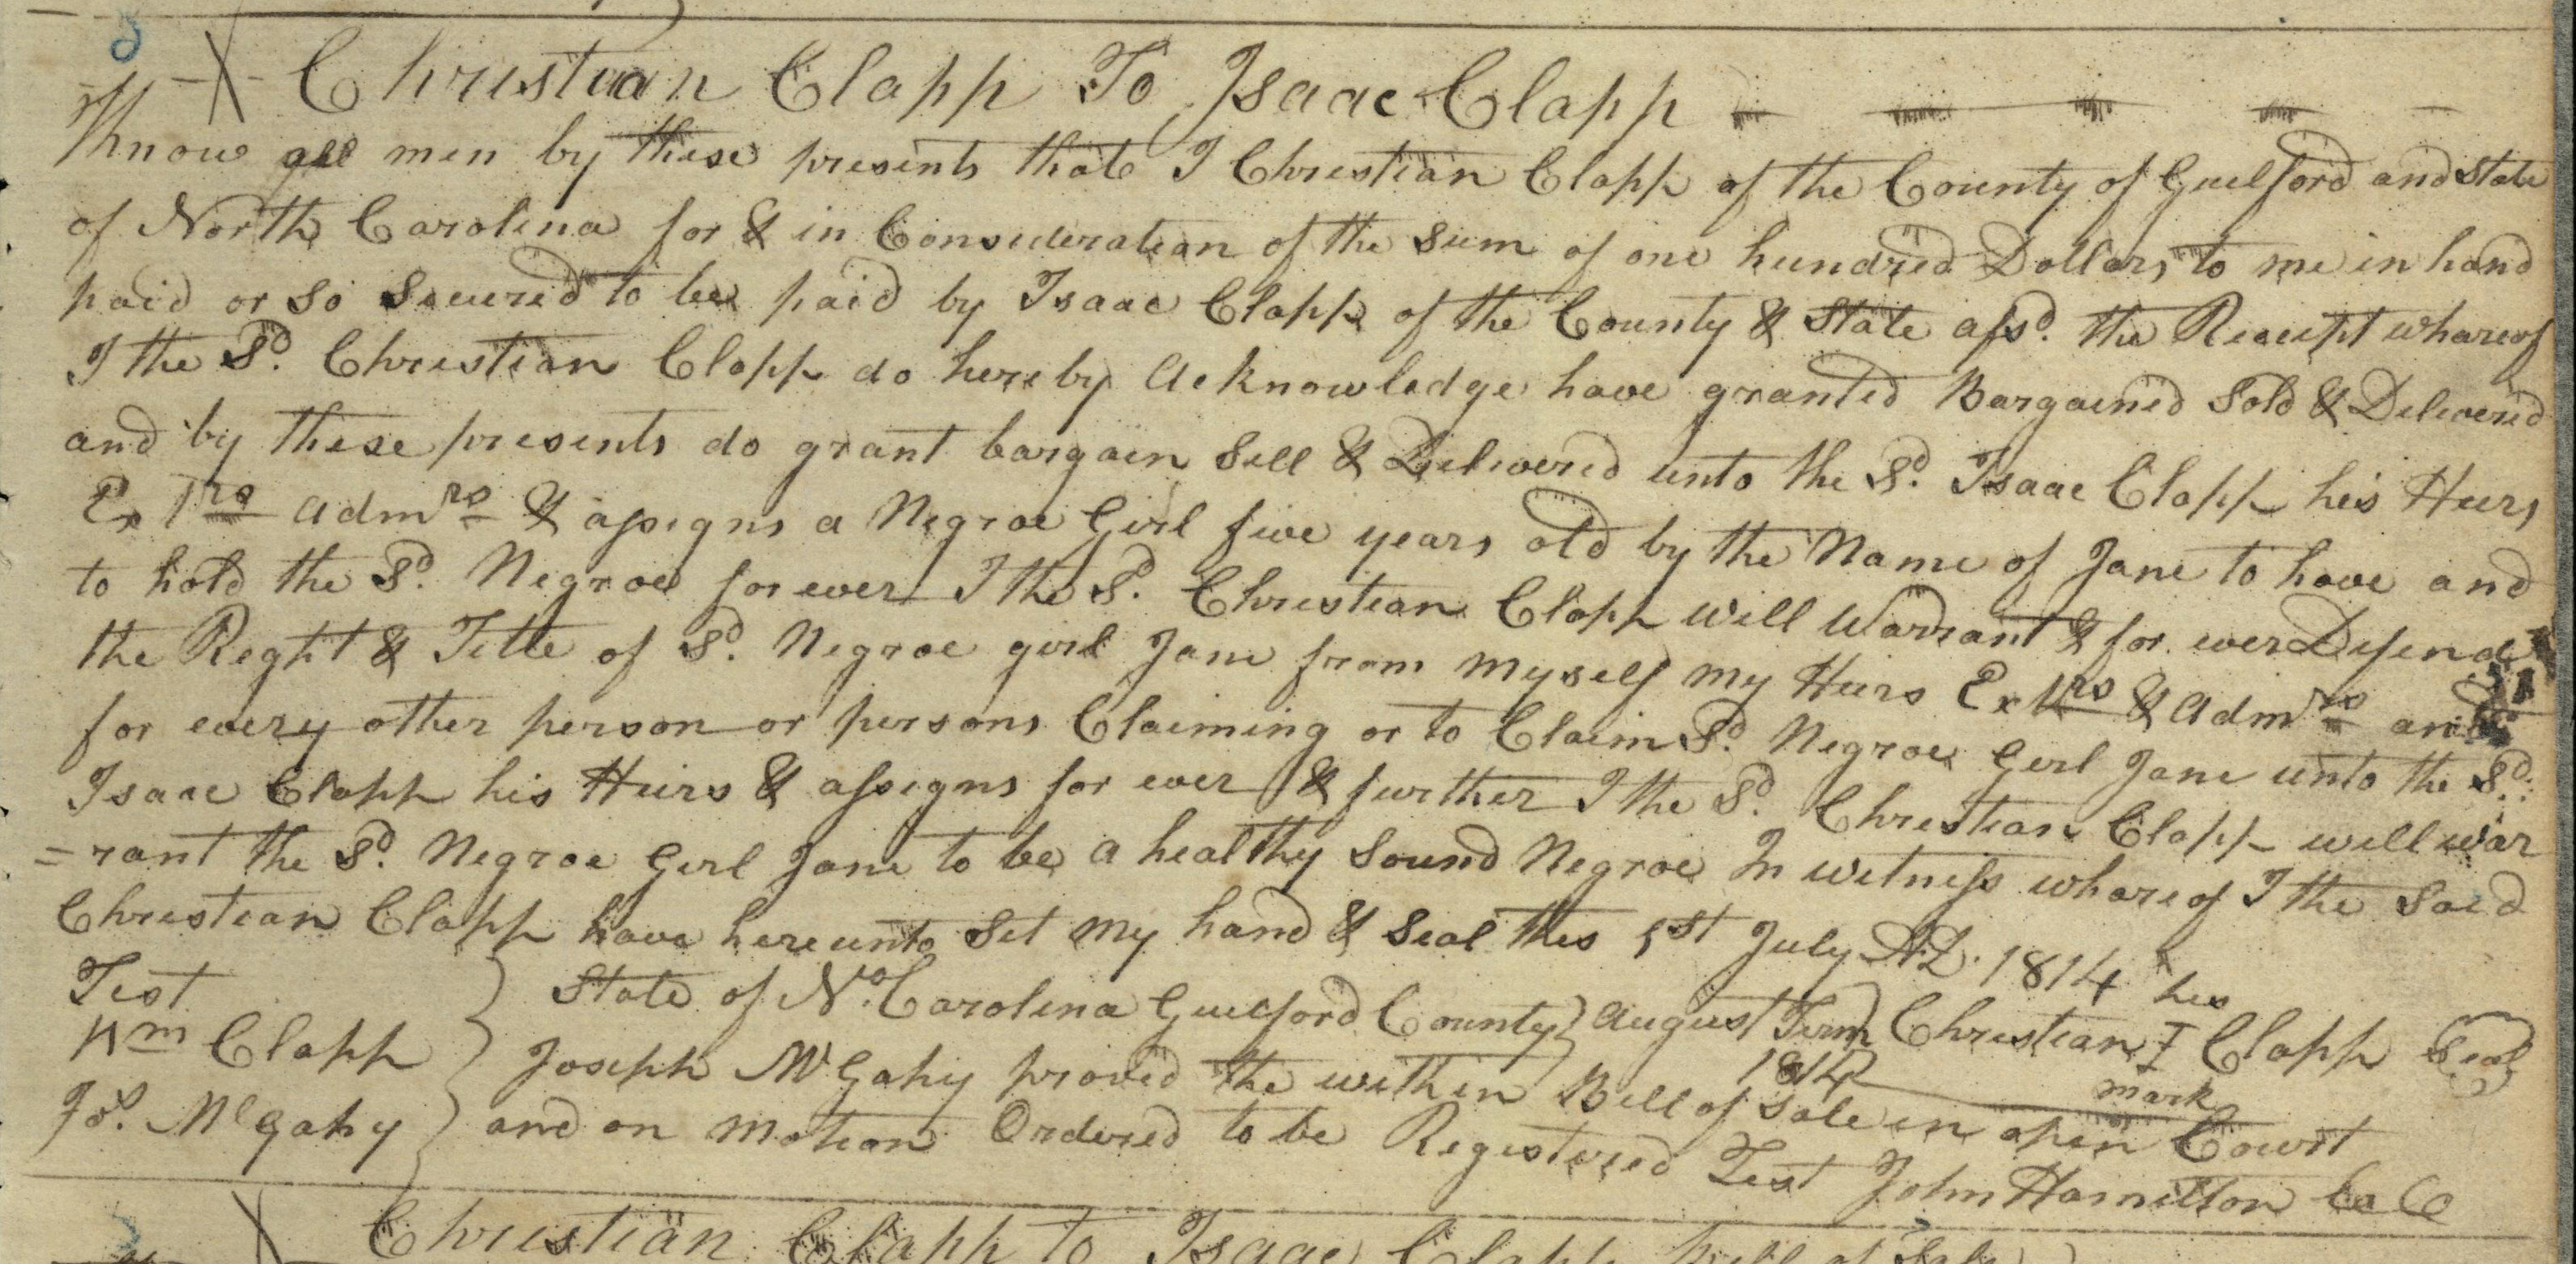 Christian Clapp To Isaac Clapp
Know all men by these presents that I Christian Clapp of the County of Guilford and State
of North Carolina for & in Consideration of the sum of one hundred Dollars to me in hand
paid or so Secured to be paid by Isaac Clapp of the County & State afsd. the Receipt whareof
I the Sd. Christian Clapp do hereby acknowledge have granted Bargained Sold & Delivered
and by these presents do grant bargain Sell & Delivered unto the Sd. Isaac Clapp his Heirs
Extrs admrs & assigns a Negroe Girl five years old by the Name of Jane to have and
to hold the Sd. Negroe for ever I the Sd. Christian Clapp will Warrant & for ever Defend
the Reght & Title of Sd. Negroe girl Jane from myself my Heirs Extrs & admrs and
for every other person or persons Claiming or to Claim Sd. Negroe Girl Jane unto the Sd.
Isaac Clapp his Heirs & assigns for ever & further I the Sd. Christian Clapp will war
=rant the Sd. Negroe Girl Jane to be a healthy Sound Negroe In witness whareof I the Said
Christian Clapp have hereunto Set my hand & Seal this 1st July A.D. 1814
Test State of No. Carolina Guilford County } August Term 1814 his
Wm Clapp Christian I Clapp Seal
mark
Jos. McGahy Joseph McGahy proved the within Bill of Sale in open Court
and on motion Ordered to be Registered Test John Hamilton CC
Christian Clapp to Isaac Clapp Bill of Sale